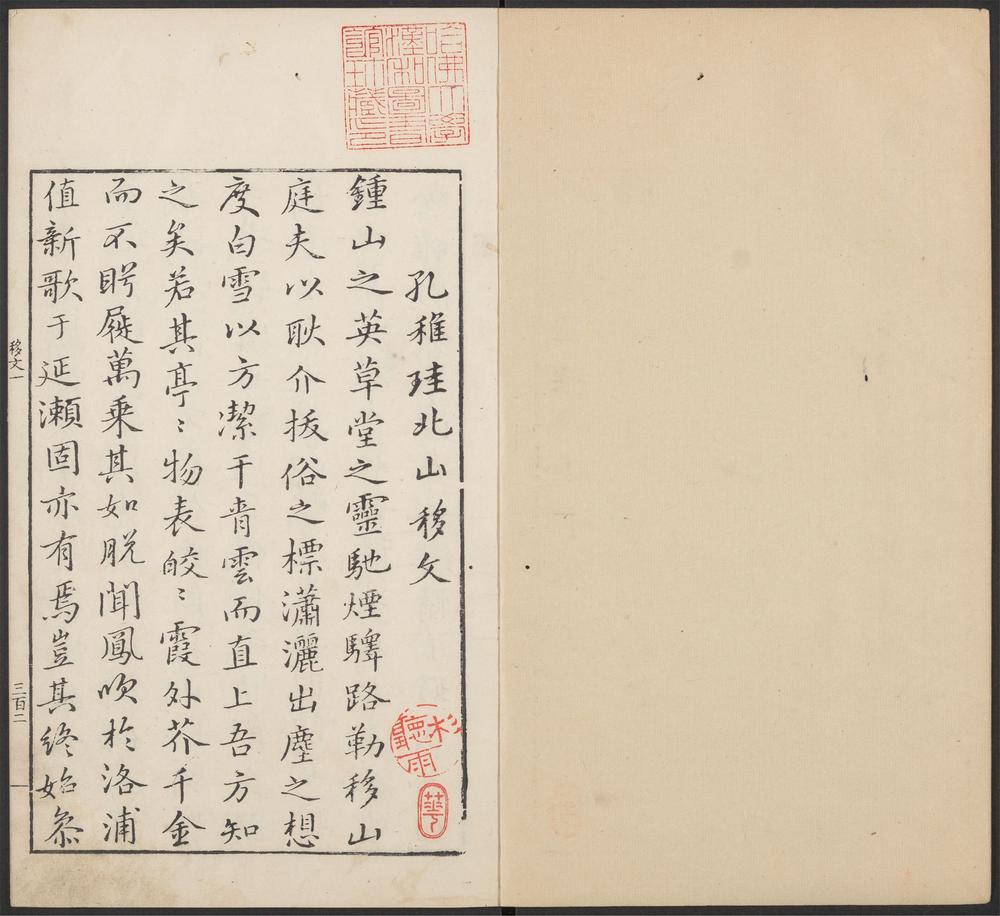 哈佛大學
漢和圖書
館珍藏印
孔稚珪北山移文
鍾山之英草堂之靈馳煙驛路勒移山
庭夫以耿介拔俗之標瀟灑出塵之想
度白雪以方潔干青雲而直上吾方知
之矣若其亭〻物表皎〻霞外芥千金
而不眄屣萬乘其如脫聞鳳吹於洛浦
值新歌于延瀨固亦有焉豈其終始叅
移文一
三百二
聽雨
華